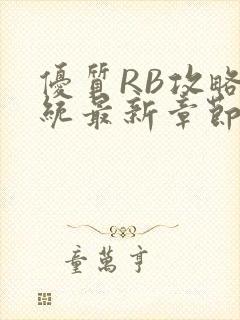 優質RB攻略
統最新章節
童萬亨